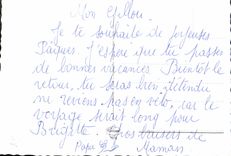 Mon Gillou.
Je te souhaite de joyeuses
Pâques. J'espère que tu passes
de bonnes vacances Bientôt le
retour, tu seras bien détendu
ne reviens pas en vélo, car le
voyage serait long pour
Brigitte. Gros baisers de
Papa et Maman